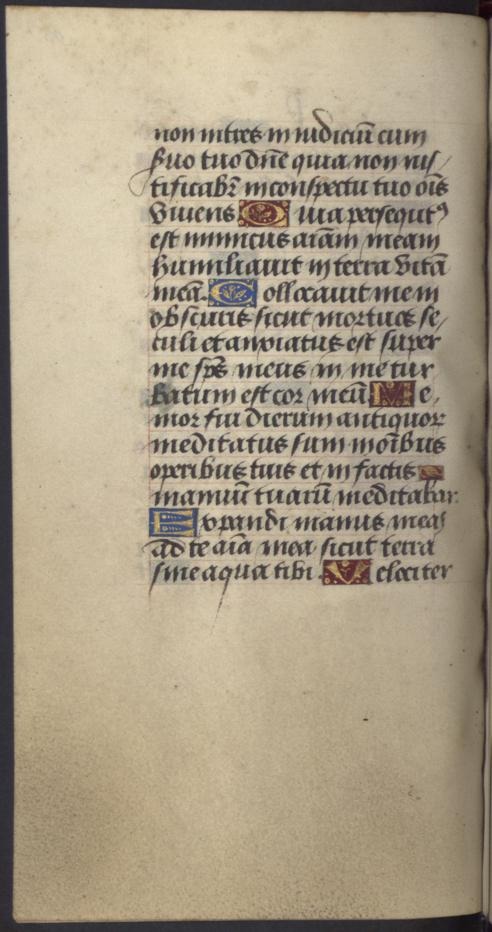 non intres in iudiciū cum
suo tuo dn̄e quia non ius/
tificabr̄ inconspectu tuo oīs
viuens Q uia persequt᾿
est inimicus aīam meam
humiliauit in terra vitā
meā. C ollocauit me in
obscuris sicut mortuos se/
culi et anxiatus est super
me sp̄s meus in me tur
batum est cor meū M e,
mor fui dierum antiquor
meditatus sum in oībus
operibus tuis et in factis
manuū tuarū meditabar.
E xpandi manus meas
ad te aīa mea sicut terra
sine aqua tibi. V elociter